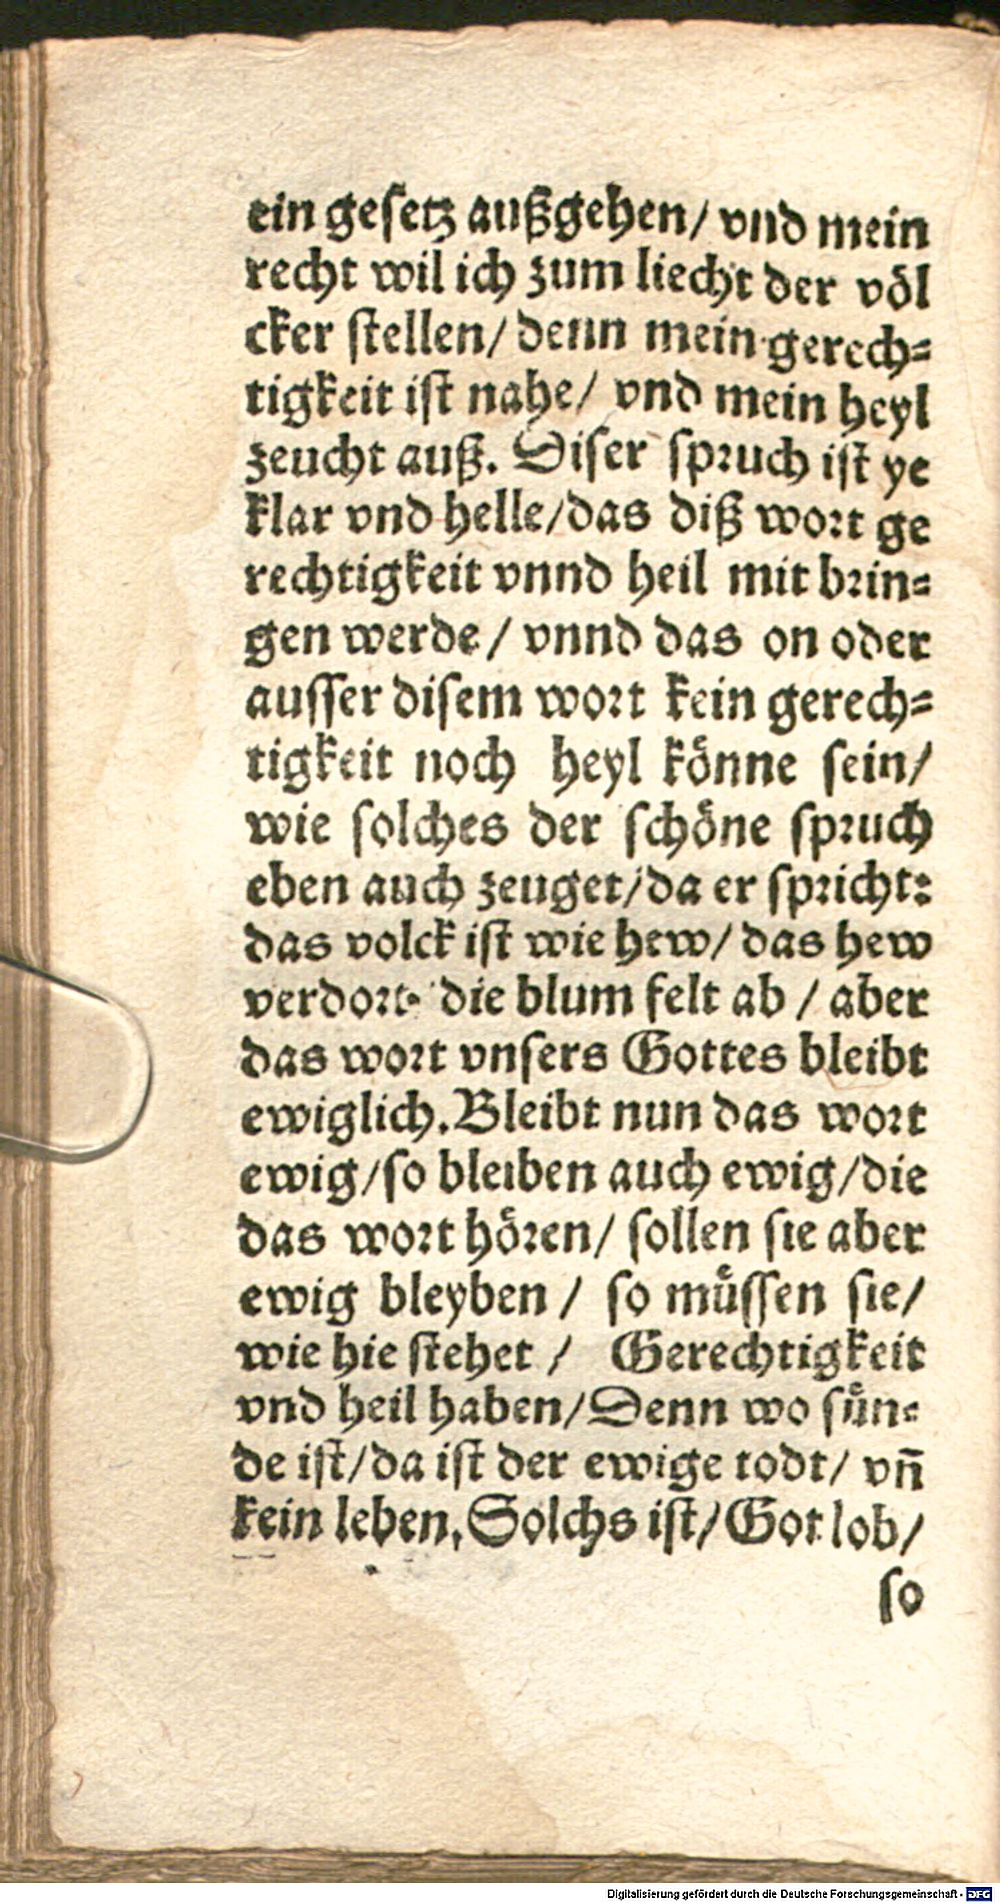 ein gesetz außgehen/ vnd mein
recht wil ich zum liecht der völ
cker stellen/ denn mein gerech=
tigkeit ist nahe/ vnd mein heyl
zeucht auß. Diser spruch ist ye
klar vnd helle/das diß wort ge
rechtigkeit vnnd heil mit brin=
gen werde/ vnnd das on oder
ausser disem wort kein gerech=
tigkeit noch heyl könne sein/
wie solches der schöne spruch
eben auch zeuget/da er spricht:
das volck ist wie hew/ das hew
verdort. die blum felt ab / aber
das wort vnsers Gottes bleibt
ewiglich. Bleibt nun das wort
ewig/so bleiben auch ewig/die
das wort hören/ sollen sie aber
ewig bleyben / so müssen sie/
wie hie stehet / Gerechtigkeit
vnd heil haben/Denn wo sün=
de ist/da ist der ewige todt/ vñ
kein leben, Solchs ist/Got lob/
so
Digitalisierung gefördert durch die Deutsche Forschungsgemeinschaft - DFG